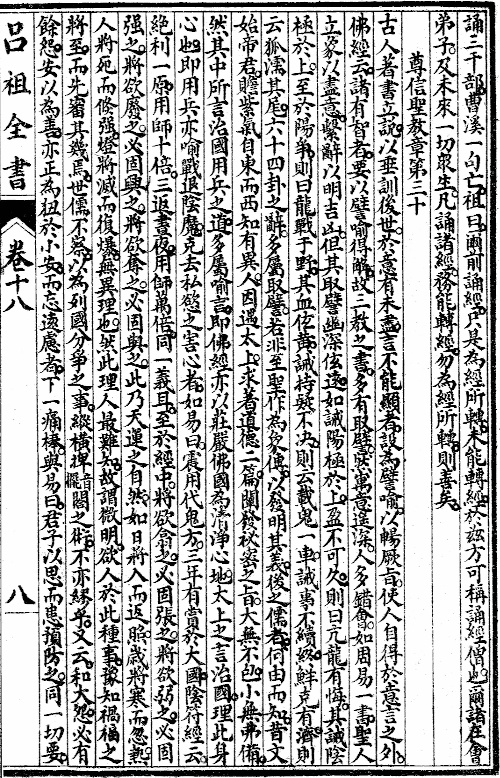 誦三千部曹溪一句亡祖曰爾前誦經只是為經所轉未能轉經於玆方可稱誦經僧也爾諸在會
弟子及未來一切衆生凡誦諸經務能轉經勿為經所轉則善矣
尊信聖教章第三十
古人著書立說以垂訓後世於意有未盡言不能顯者設為譬喻以暢厥旨使人自得於意言之外
佛經云諸有智者要以譬喻得解故三教之書多有取譬獎寓意遂深人多錯會如周易一書聖人
立象以盡意繫辭以明吉凶但其取譬幽深佷遠如誡陽極於上盈不可久則曰亢龍有悔其誡陰
極於上至於陽爭則曰龍戰于野其血佐黃誡持疑不决則云載鬼一車誡事不續終鮮克有濟則
云狐濡其尾六十四卦之辭多屬取譬若非至聖作為象傳以發明其義後之儒者何由而知昔文
始帝君瞻紫氣自東而西知有異人因遇太上求著道德二篇闡發秘密之旨大無不包小無弗備
然其中所言治國用兵之道多屬喻言即佛經亦以莊嚴佛國為清淨心地太上之言治國理此身
心也即用兵亦喻戰退陰魔克去私慾之害心者如易曰震用伐鬼方三年有賞於大國陰符經云
絕利一原用師十倍三返晝夜用師萬倍同一義耳至於經中將欲翕之必固張之將欲弱之必固
强之將欲廢之必固興之將欲奪之必固與之此乃天運之自然如日將入而返照歲將寒而忽熱
人將死而倏强燈將滅而復爆無異理也然此理人最難知故謂微明欲人於此種事豫知禍福之
將至而先審其幾焉世儒不察以為列國分爭之事縱橫捭音擺闔之術不亦繆乎又云和大怨必有
餘怨安以為善亦正為狃於小安而忘遠慮者下一痛棒與易曰君子以思而患預防之同一切要
呂祖全書
卷十八
八